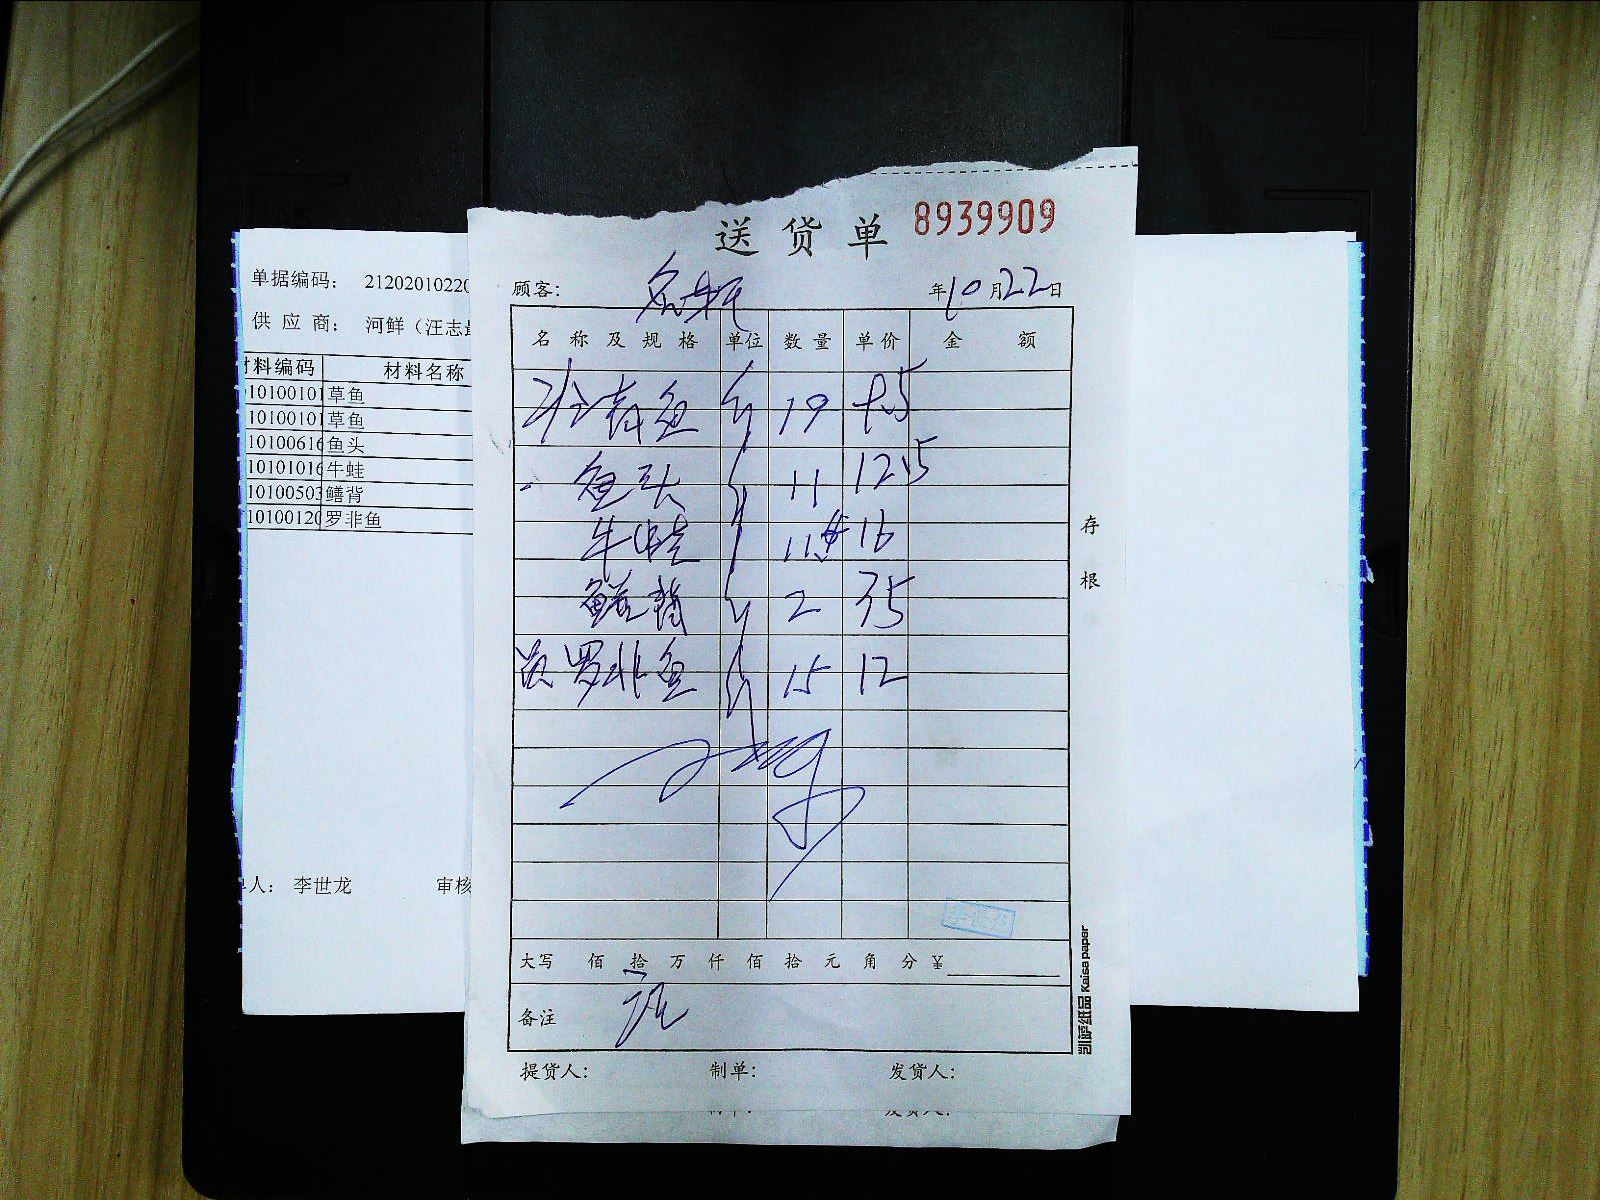 送货单 8939909
顾客: 年10月22日
名称及规格 单位 数量 单价 金额
鱼 斤 19
鱼头 11 12.5
牛蛙 11 16
鳝背 斤 2 35
罗非鱼 斤 15 12
存根
大写 佰拾万仟佰拾元角分¥
备注
提货人: 制单: 发货人:
凯萨纸品 Kaisa paper
单据编码: 21202010220
供应商: 河鲜（汪志
材料编码 材料名称
10100101 草鱼
10100101 草鱼
10100616 鱼头
10101016 牛蛙
10100503 鳝背
10100120 罗非鱼
人: 李世龙 审核